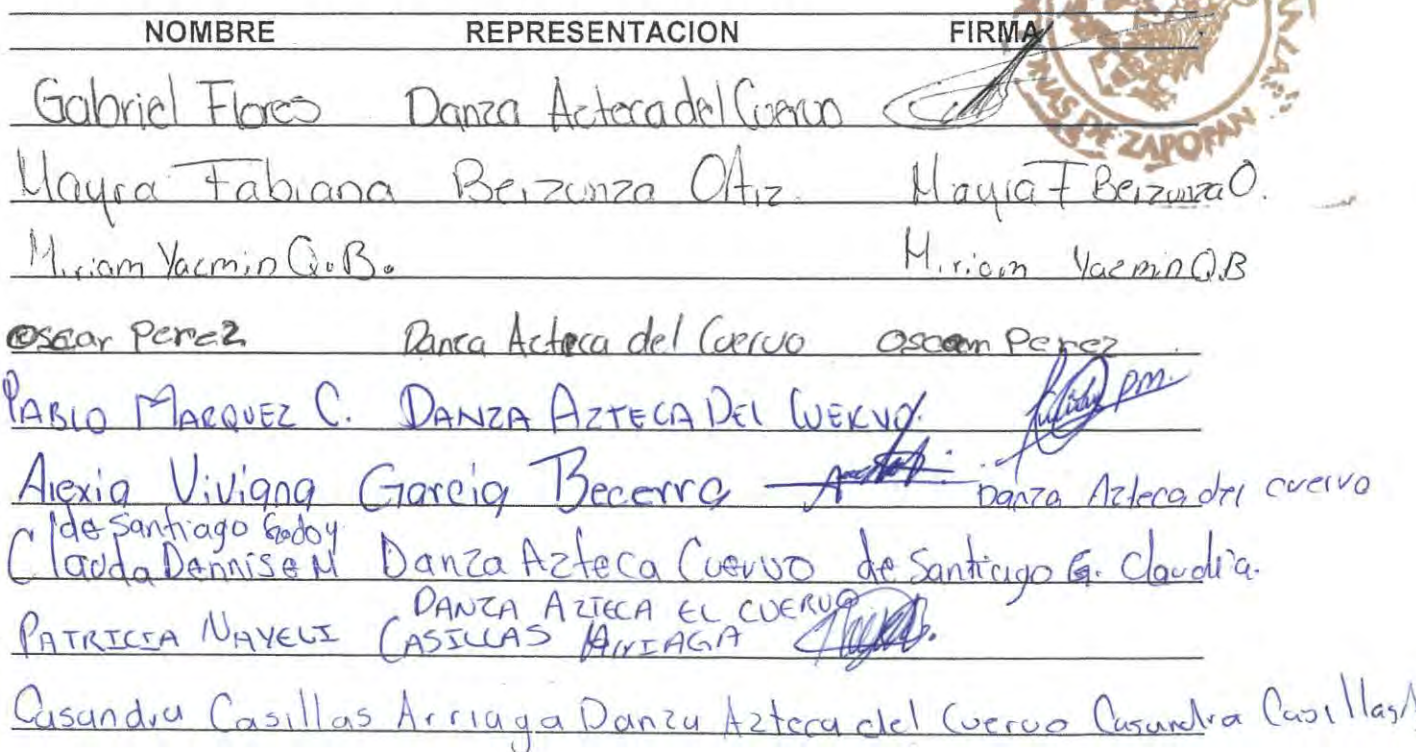 NOMBRE REPRESENTACION FIRMA
DE ZAPOPAN
Gabriel Flores Danza Azteca del Cuervo
Mayra Fabiana Berzunza Ortiz. Mayra F Berzunza O.
Miriam Yacmin Q.B. Miriam Yacmin Q.B
oscar Perez Danza Azteca del Cuervo oscar Perez
PABLO MARQUEZ C. DANZA AZTECA DEL CUERVO. P.M.
Alexia Viviana Garcia Becerra Danza Azteca del cuervo
de Santiago Godoy
Claudia Dennise M Danza Azteca Cuervo de Santiago G. Claudia.
DANZA AZTECA EL CUERVO
PATRICIA NAYELI CASILLAS ARRIAGA
Casandra Casillas Arriaga Danza Azteca del Cuervo Casandra Casillas A